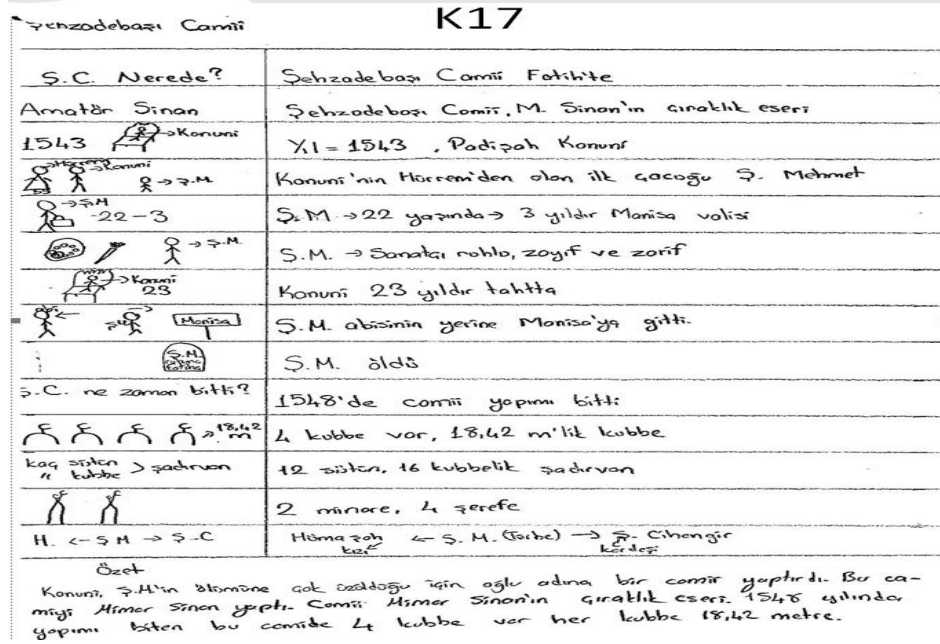 K17
Şehzadebaşı Camii
Ş.C. Nerede? Şehzadebaşı Camii Fatih'te
Amatör Sinan Şehzadebaşı Camii, M. Sinan'ın çıraklık eseri
1543 →Kanuni Y.I = 1543, Padişah Kanuni
Hürrem →Kanuni →Ş.M. Kanuni'nin Hürrem'den olan ilk çocoğu Ş. Mehmet
→Ş.M -22-3 Ş.M → 22 yaşında → 3 yıldır Manisa valisi
→Ş.M. Ş.M. → Sanatçı ruhlu, zayıf ve zarif
→Kanuni 23 Kanuni 23 yıldır tahtta
abi ← Ş.M Manisa Ş.M. abisinin yerine Manisa'ya gitti.
Ş.M. Fatiha Ş.M. öldü
Ş.C. ne zaman bitti? 1548'de camii yapımı bitti
18,42 m 4 kubbe var, 18,42 m'lik kubbe
kaç sütun " kubbe > şadırvan 12 sütun, 16 kubbelik şadırvan
2 minare, 4 şerefe
H. <- Ş M → Ş.C Hümaşah kızı ← Ş. M. (Türbe) → Ş. Cihangir kardeşi
Özet
Konuni, Ş.M'in ölümüne çok üzüldüğü için oğlu adına bir camii yaptırdı. Bu ca-
miyi Mimar Sinan yaptı. Camii Mimar Sinan'ın çıraklık eseri. 1548 yılında
yapımı biten bu camide 4 kubbe var her kubbe 18,42 metre.